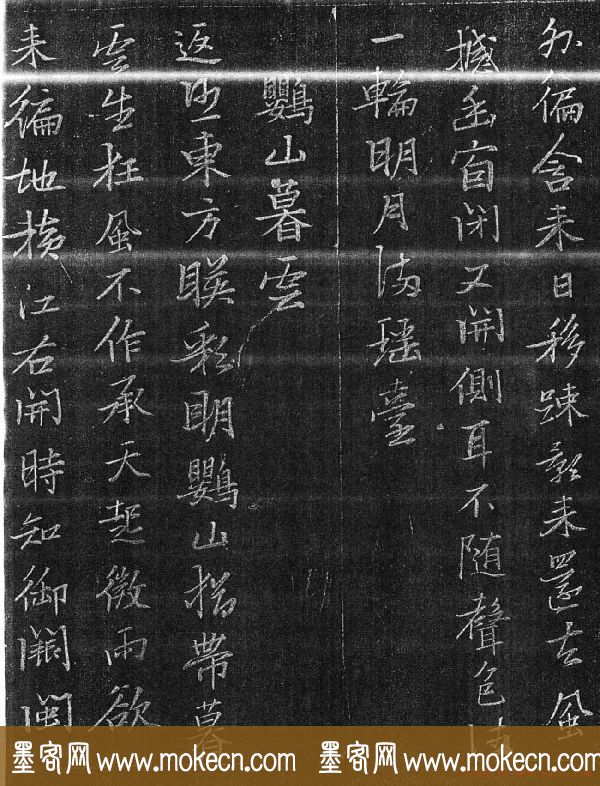 外偏含来日移疎影来還去風
撼画窗闭又開側耳不随聲色
一輪明月满瑶臺
鸚山暮雲
返照東方映彩明鸚山招帶暮
雲生狂風不作承天起微雨欲
来徧地横江右開時知御闕闽
墨客网 www.mokecn.com 墨客网 www.mokecn.com